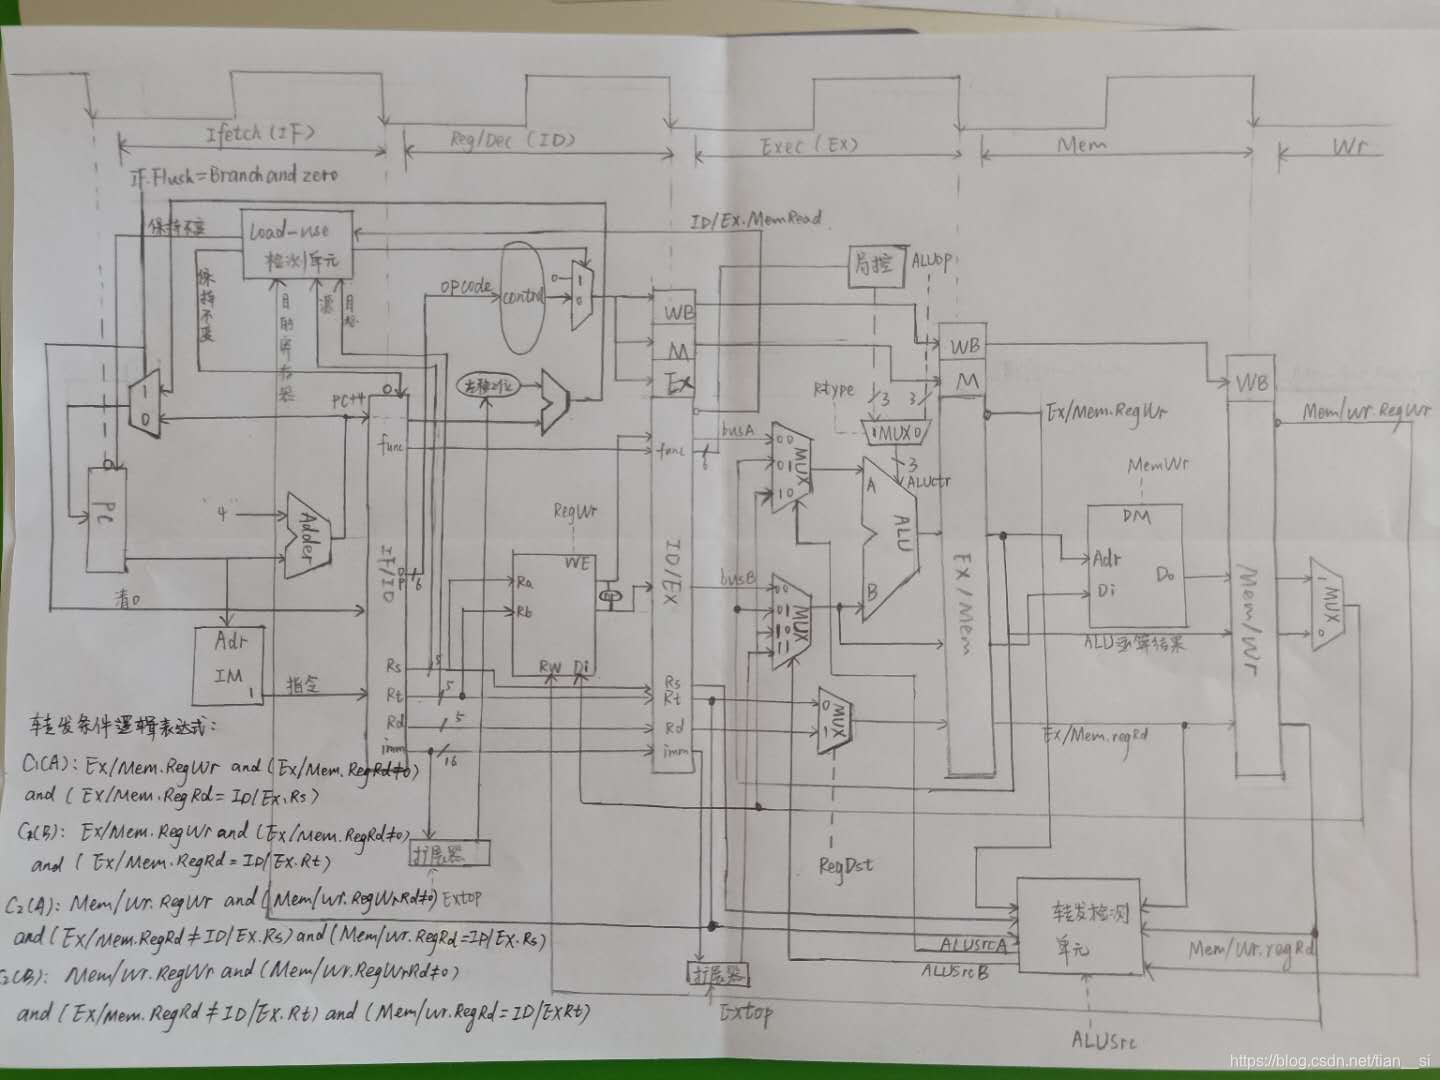 Ifetch (IF)
Reg/Dec (ID)
Exec (EX)
Mem
Wr
IF.Flush=Branch and zero
保持不变
Load-use
检测单元
ID/Ex.MemRead
局控
ALUop
保持不变
目的寄存器
源
OPcode
control
0
1
0
WB
M
Ex
WB
M
WB
1
0
PC+4
左移2位
Rtype
3
3
Ex/Mem.RegWr
Mem/Wr.RegWr
func
func
6
busA
00
01
10
MUX
1 MUX 0
3
ALUctr
MemWr
PC
4
Adder
IF/ID
OP
6
RegWr
WE
Ra
Rb
RW
Di
ID/Ex
A
B
ALU
Ex/Mem
DM
Adr
Di
Do
Mem/Wr
1
MUX
0
清0
busB
00
01
10
11
MUX
ALU运算结果
Adr
IM
指令
Rs
5
Rt
5
Rd
5
imm
16
Rs
Rt
Rd
imm
0
1
MUX
Ex/Mem.regRd
转发条件逻辑表达式:
C1(A): Ex/Mem.RegWr and (Ex/Mem.RegRd≠0)
and ( Ex/Mem.RegRd=ID/Ex.Rs)
C1(B): Ex/Mem.RegWr and (Ex/Mem.RegRd≠0)
and ( Ex/Mem.RegRd=ID/Ex.Rt)
扩展器
Extop
RegDst
C2(A): Mem/Wr.RegWr and (Mem/Wr.RegWrRd≠0)
and (Ex/Mem.RegRd≠ID/Ex.Rs) and (Mem/Wr.RegRd=ID/Ex.Rs)
C2(B): Mem/Wr.RegWr and (Mem/Wr.RegWrRd≠0)
and (Ex/Mem.RegRd≠ID/Ex.Rt) and (Mem/Wr.RegRd=ID/ExRt)
转发检测
单元
ALUSrcA
ALUSrcB
Mem/Wr.regRd
扩展器
Extop
ALUSrc
https://blog.csdn.net/tian__si